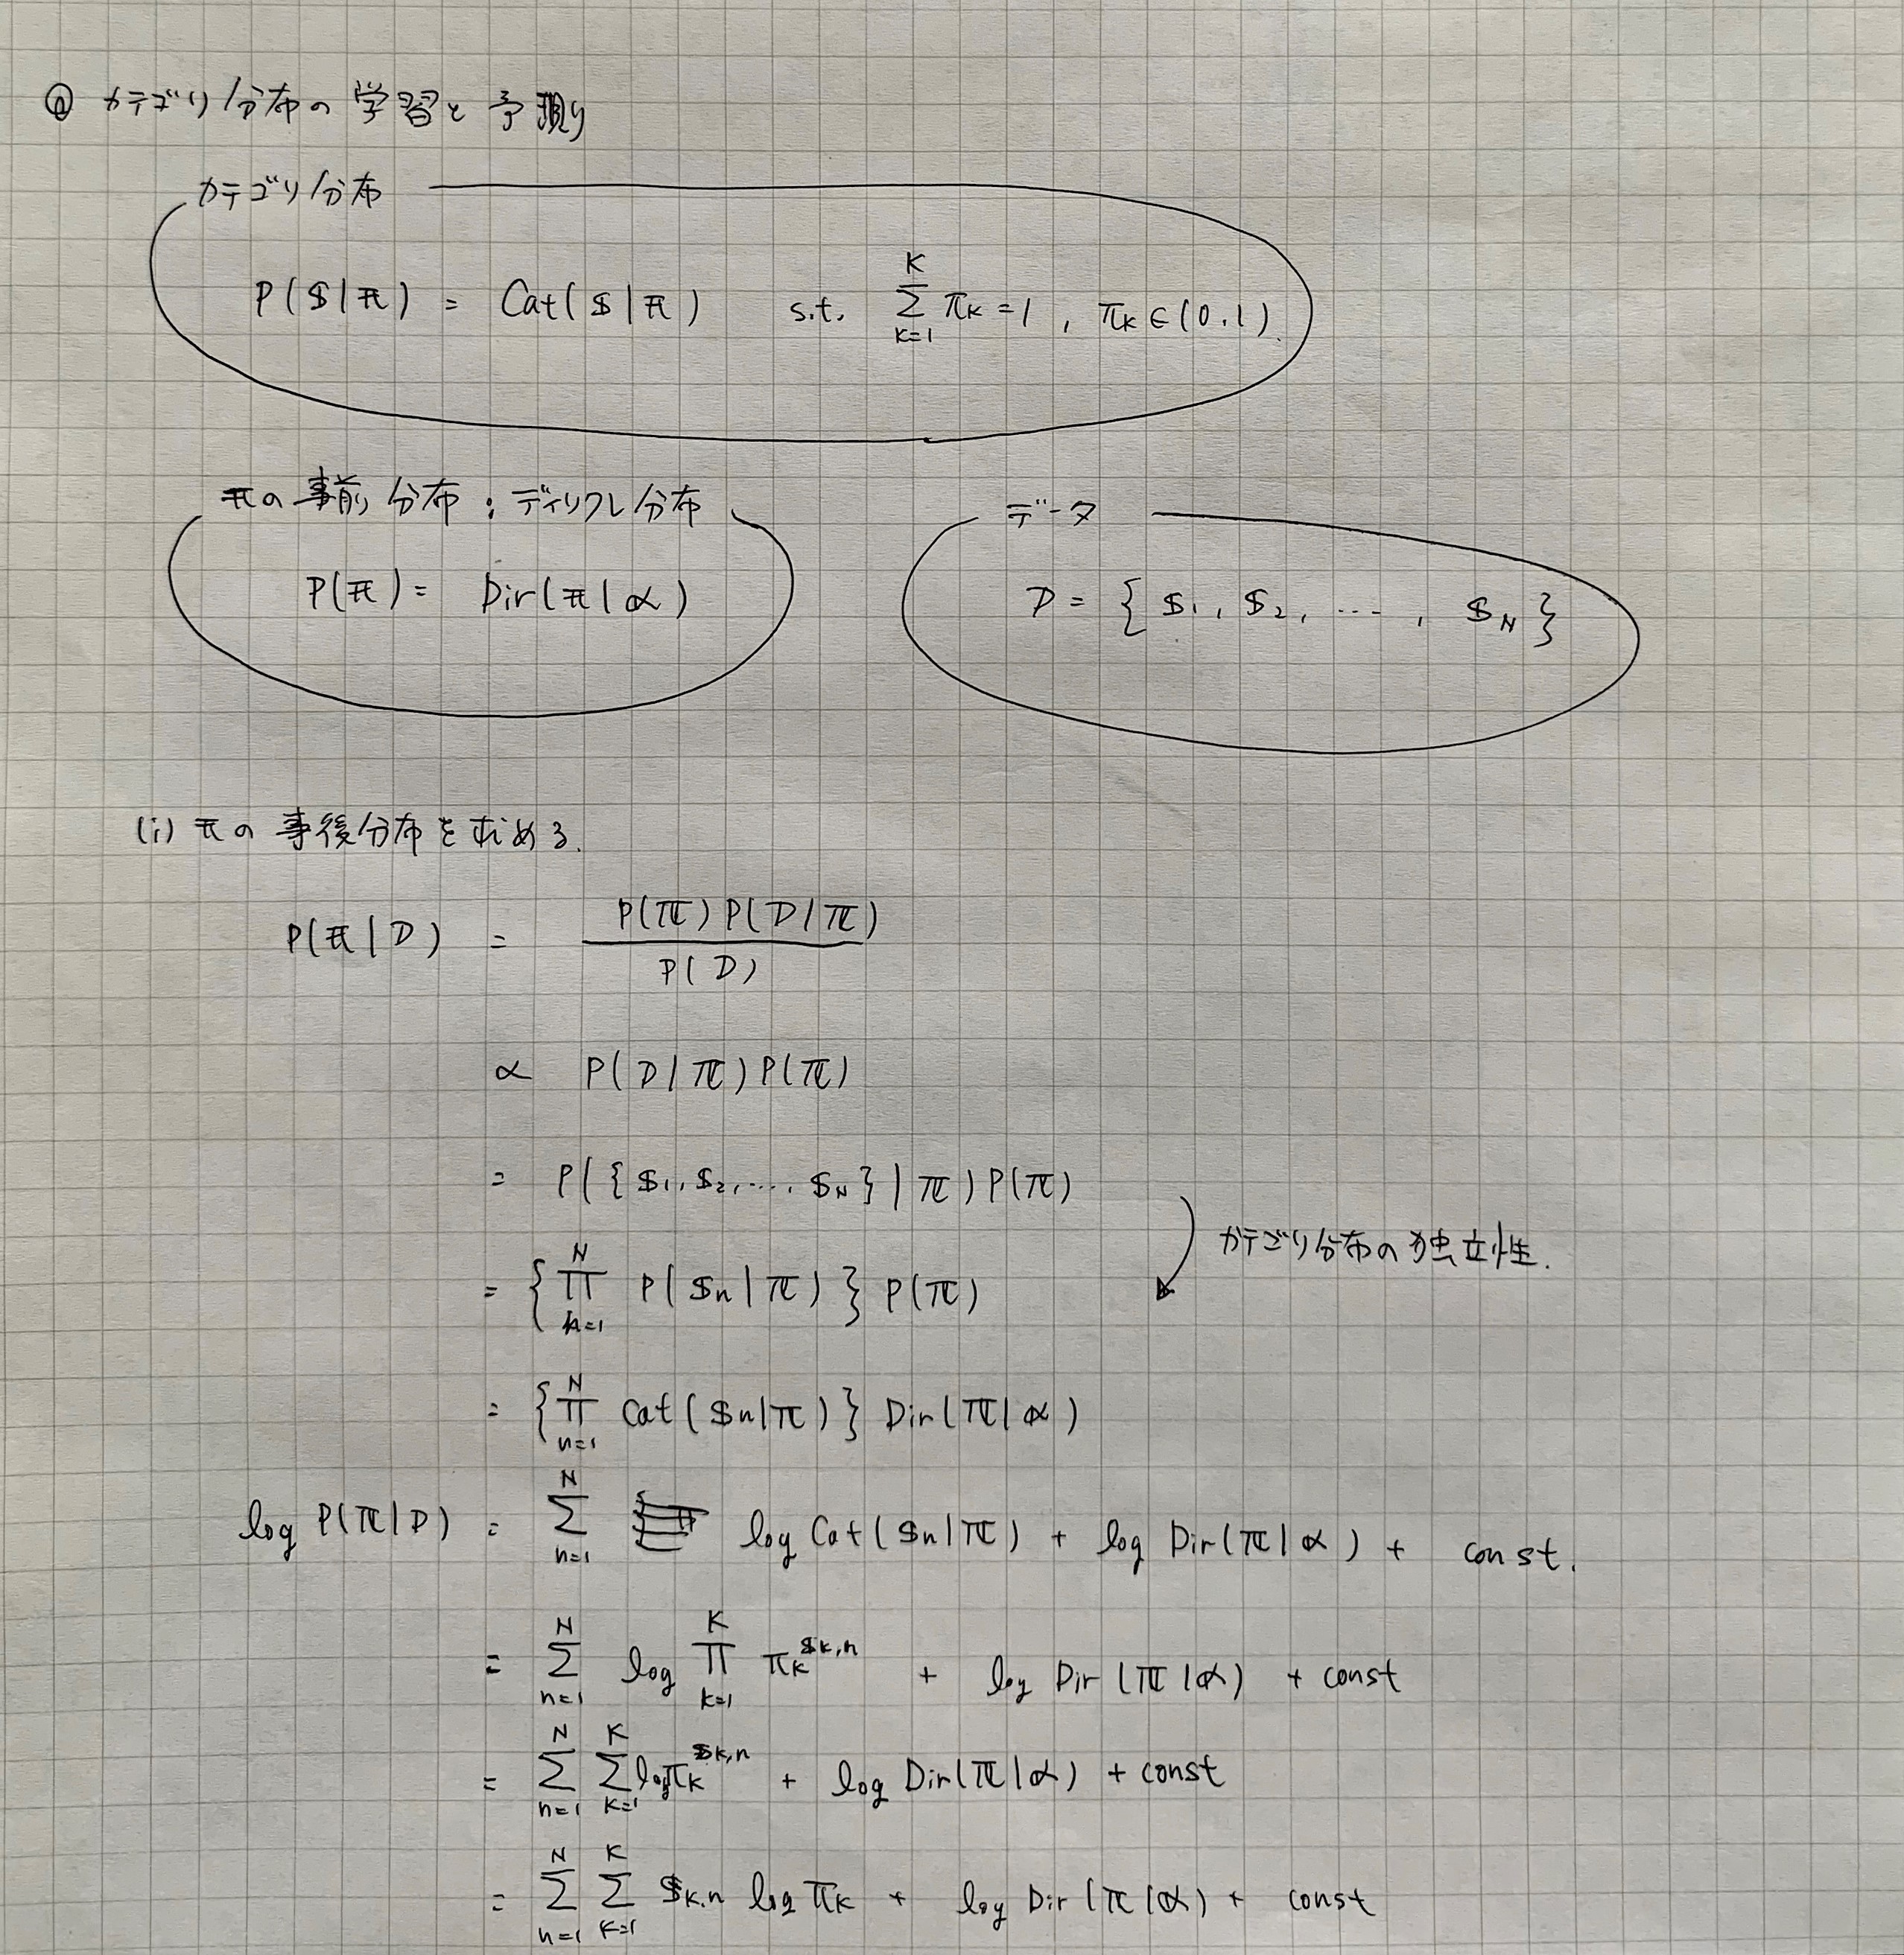 ◎ カテゴリ分布の学習と予測
カテゴリ分布
P(𝕊|π) = Cat(𝕊|π) s.t. Σ_{k=1}^{K} π_k = 1, π_k ∈ (0,1).
πの事前分布：ディリクレ分布
P(π) = Dir(π|α)
データ
D = { 𝕊_1, 𝕊_2, ..., 𝕊_N }
(i) πの事後分布を求める.
P(π|D) = P(π)P(D|π) / P(D)
∝ P(D|π)P(π)
= P({𝕊_1, 𝕊_2, ..., 𝕊_N}|π)P(π)
カテゴリ分布の独立性.
= { Π_{n=1}^{N} P(𝕊_n|π) } P(π)
= { Π_{n=1}^{N} Cat(𝕊_n|π) } Dir(π|α)
log P(π|D) = Σ_{n=1}^{N} log Cat(𝕊_n|π) + log Dir(π|α) + const.
= Σ_{n=1}^{N} log Π_{k=1}^{K} π_k^{𝕊_{k,n}} + log Dir(π|α) + const
= Σ_{n=1}^{N} Σ_{k=1}^{K} log π_k^{𝕊_{k,n}} + log Dir(π|α) + const
= Σ_{n=1}^{N} Σ_{k=1}^{K} 𝕊_{k,n} log π_k + log Dir(π|α) + const